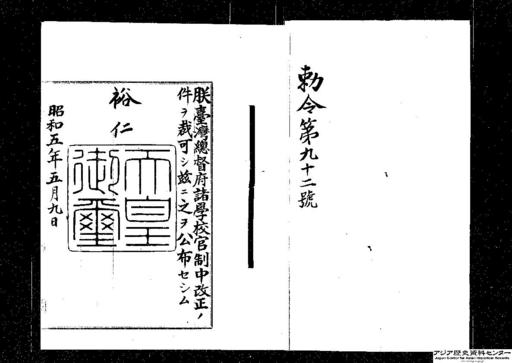 勅令第九十二號
朕臺灣總督府諸學校官制中改正ノ
件ヲ裁可シ玆ニ之ヲ公布セシム
裕仁
天皇
御璽
昭和五年五月九日
アジア歴史資料センター
Japan Center for Asian Historical Records